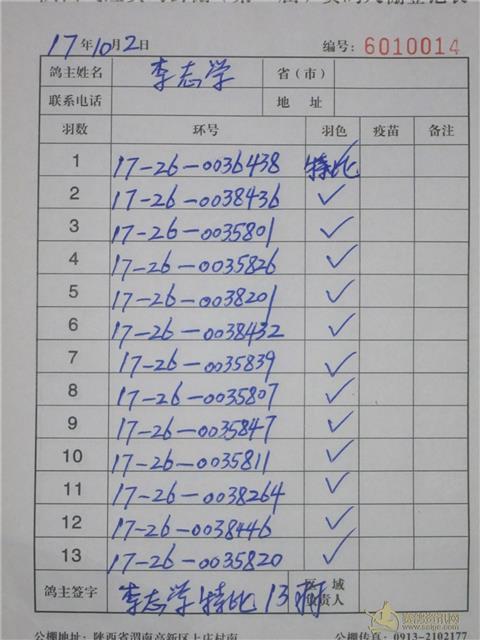 17年10月2日 编号: 6010014
鸽主姓名 李志学 省（市）
联系电话 地 址
羽数 环号 羽色 疫苗 备注
1 17-26-0036438 特比
2 17-26-0038436 ✓
3 17-26-0035801 ✓
4 17-26-0035826 ✓
5 17-26-0038201 ✓
6 17-26-0038432 ✓
7 17-26-0035839 ✓
8 17-26-0035807 ✓
9 17-26-0035847 ✓
10 17-26-0035811 ✓
11 17-26-0038264 ✓
12 17-26-0038446 ✓
13 17-26-0035820 ✓
鸽主签字 李志学 特比13羽 区 域
负责人
公棚地址: 陕西省渭南高新区上庄村南 公棚传真: 0913-2102177
赛鸽资讯网
http://www.saige.com